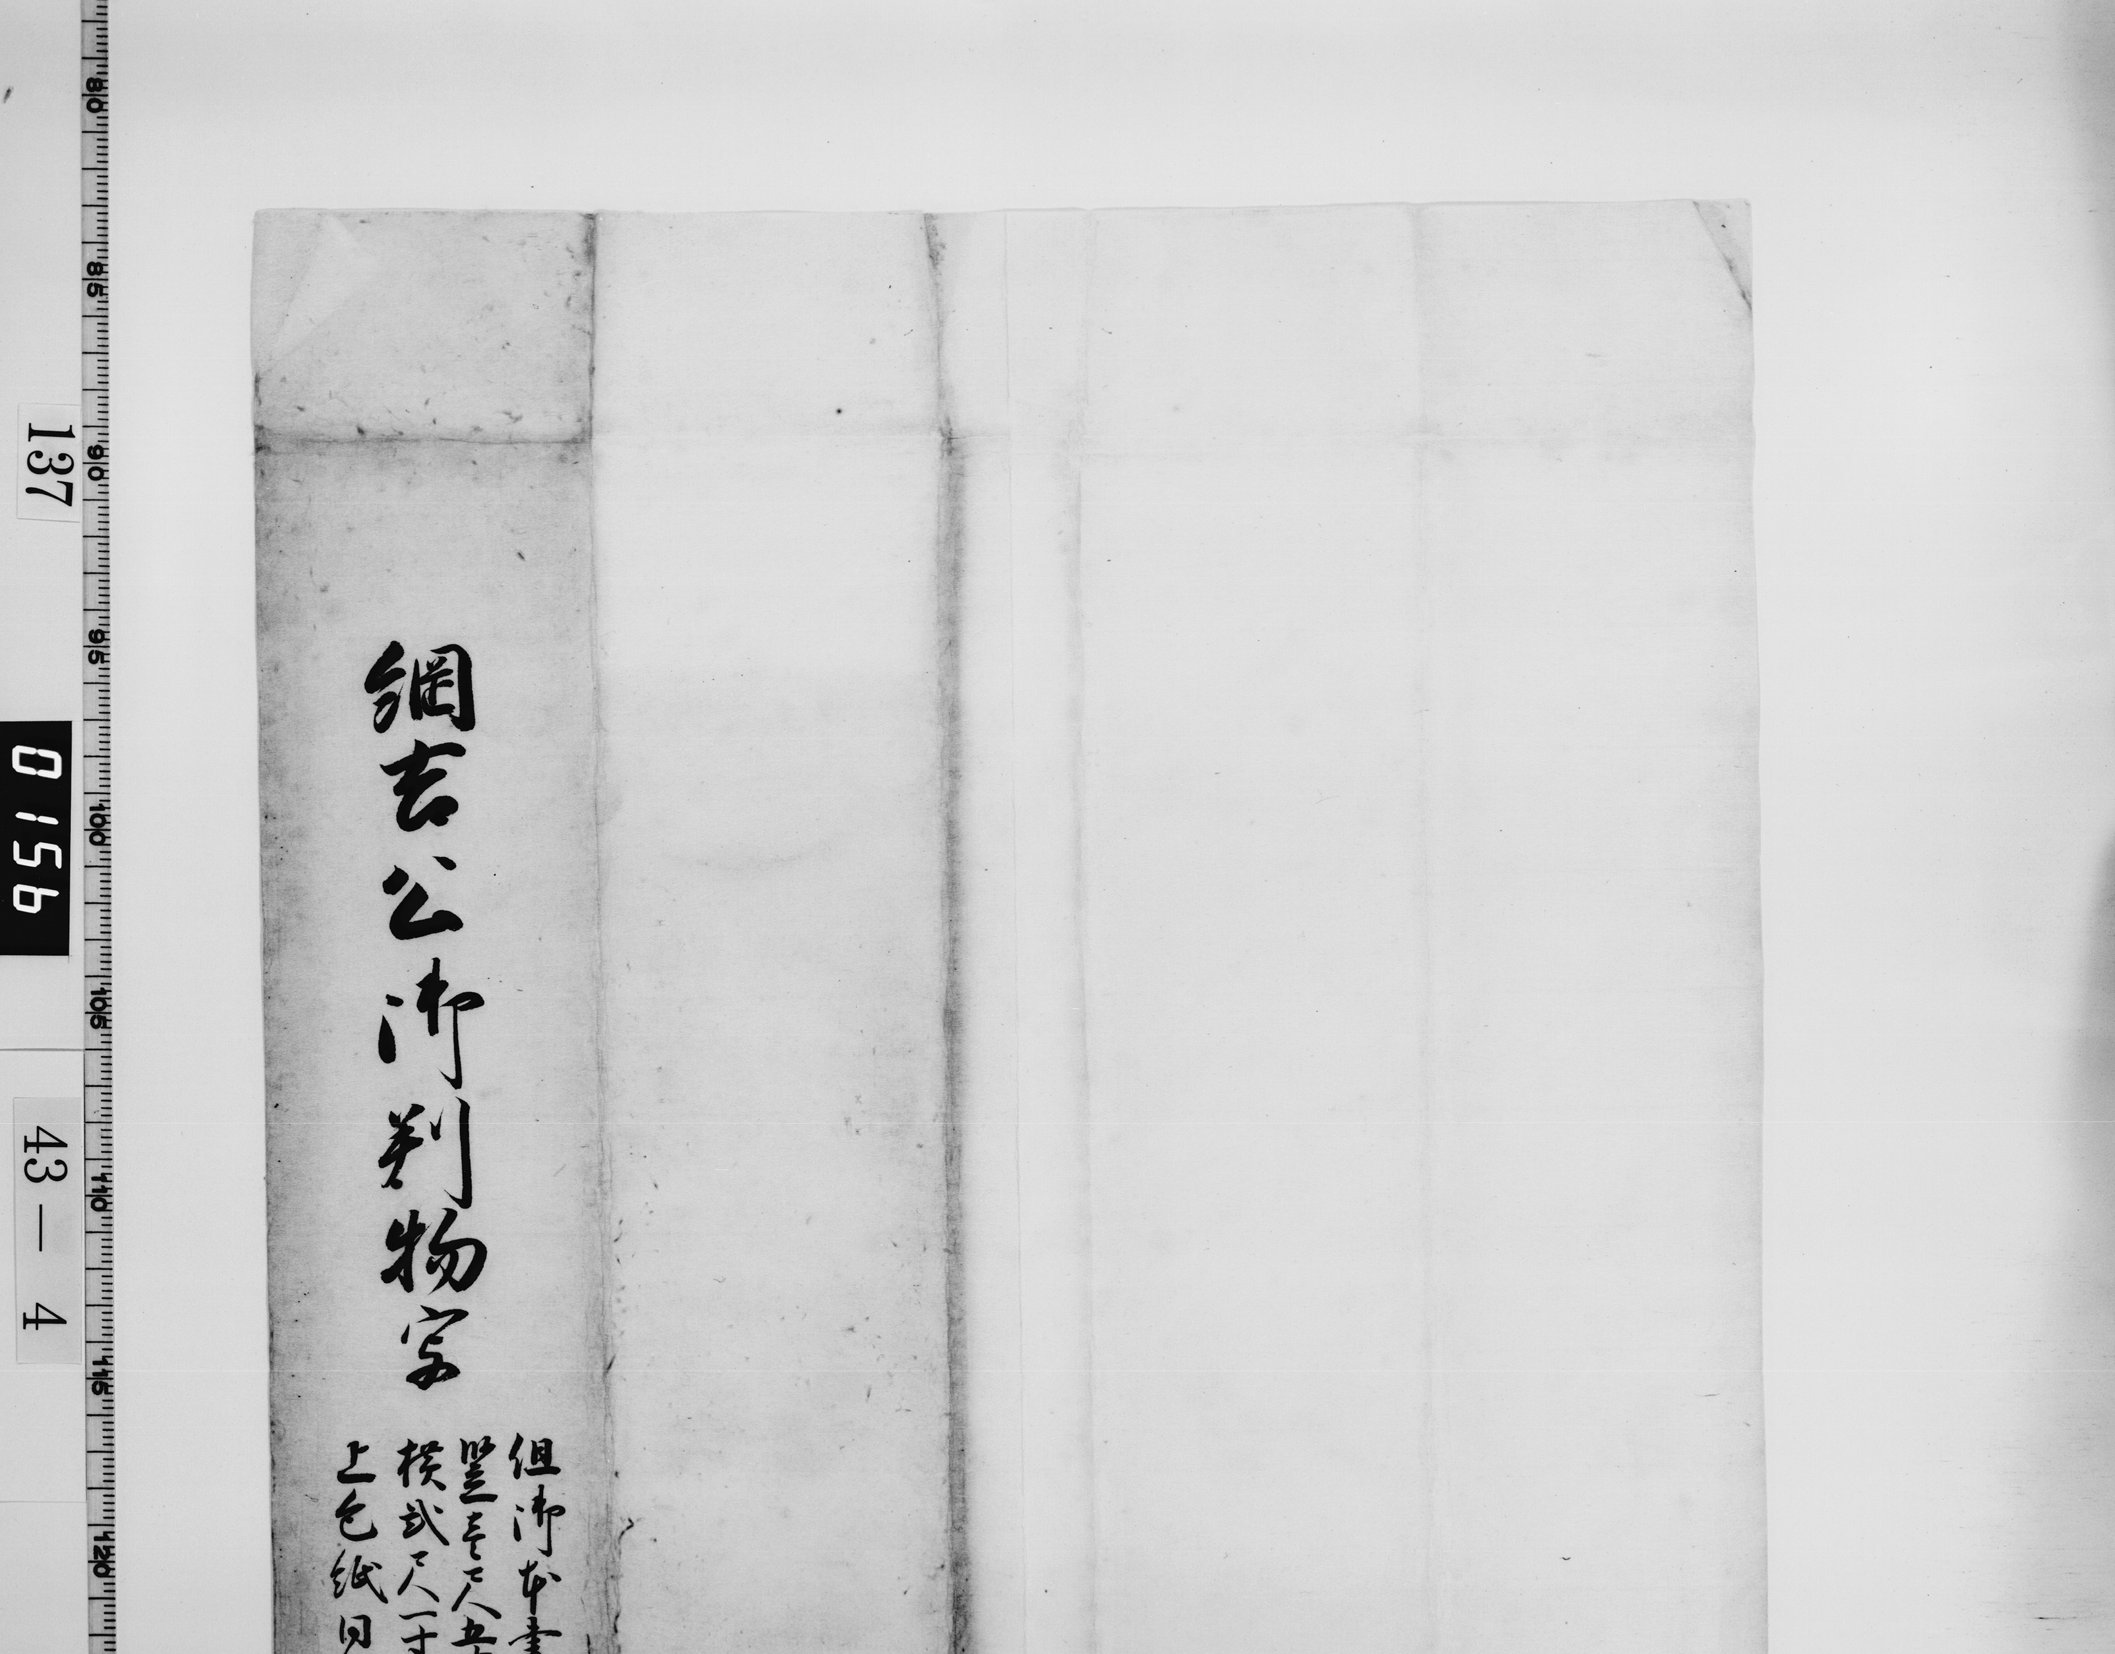 綱吉公御判物写
但御本書
竪壱尺五
横弐尺一寸
上包紙同
137
0156
43―4
80
85
90
95
100
105
110
115
120